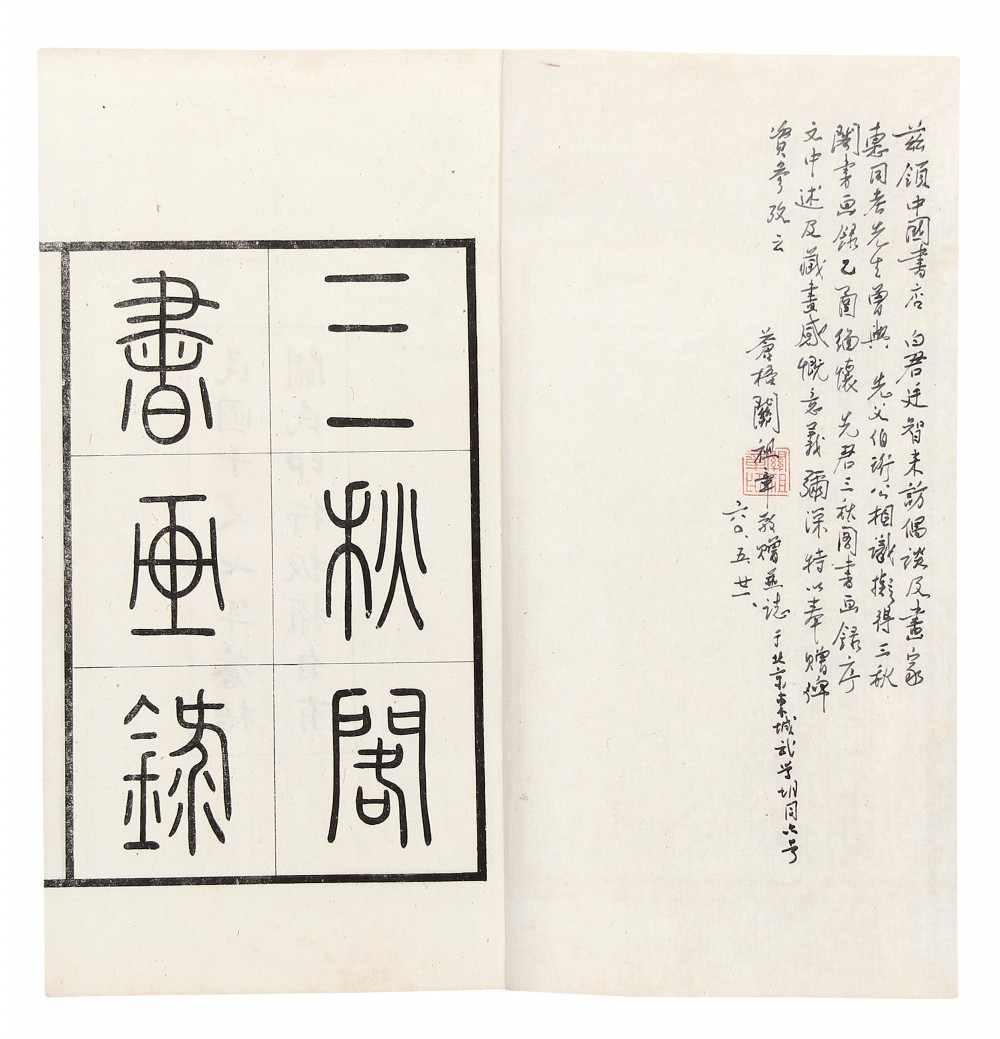 茲領中國書店 白君廷智来訪偶談及畫家
惠同老先生曾與 先父伯珩公相識擬得三秋
閣書画録乙函緬懷 先君三秋阁書画録序
文中述及藏畫感慨意義彌深特以奉贈俾
資參攷云
蒼梧關祖章敬贈並誌于北京東城武学胡同六号
六〇、五、廿一、
三秋閣
書画錄